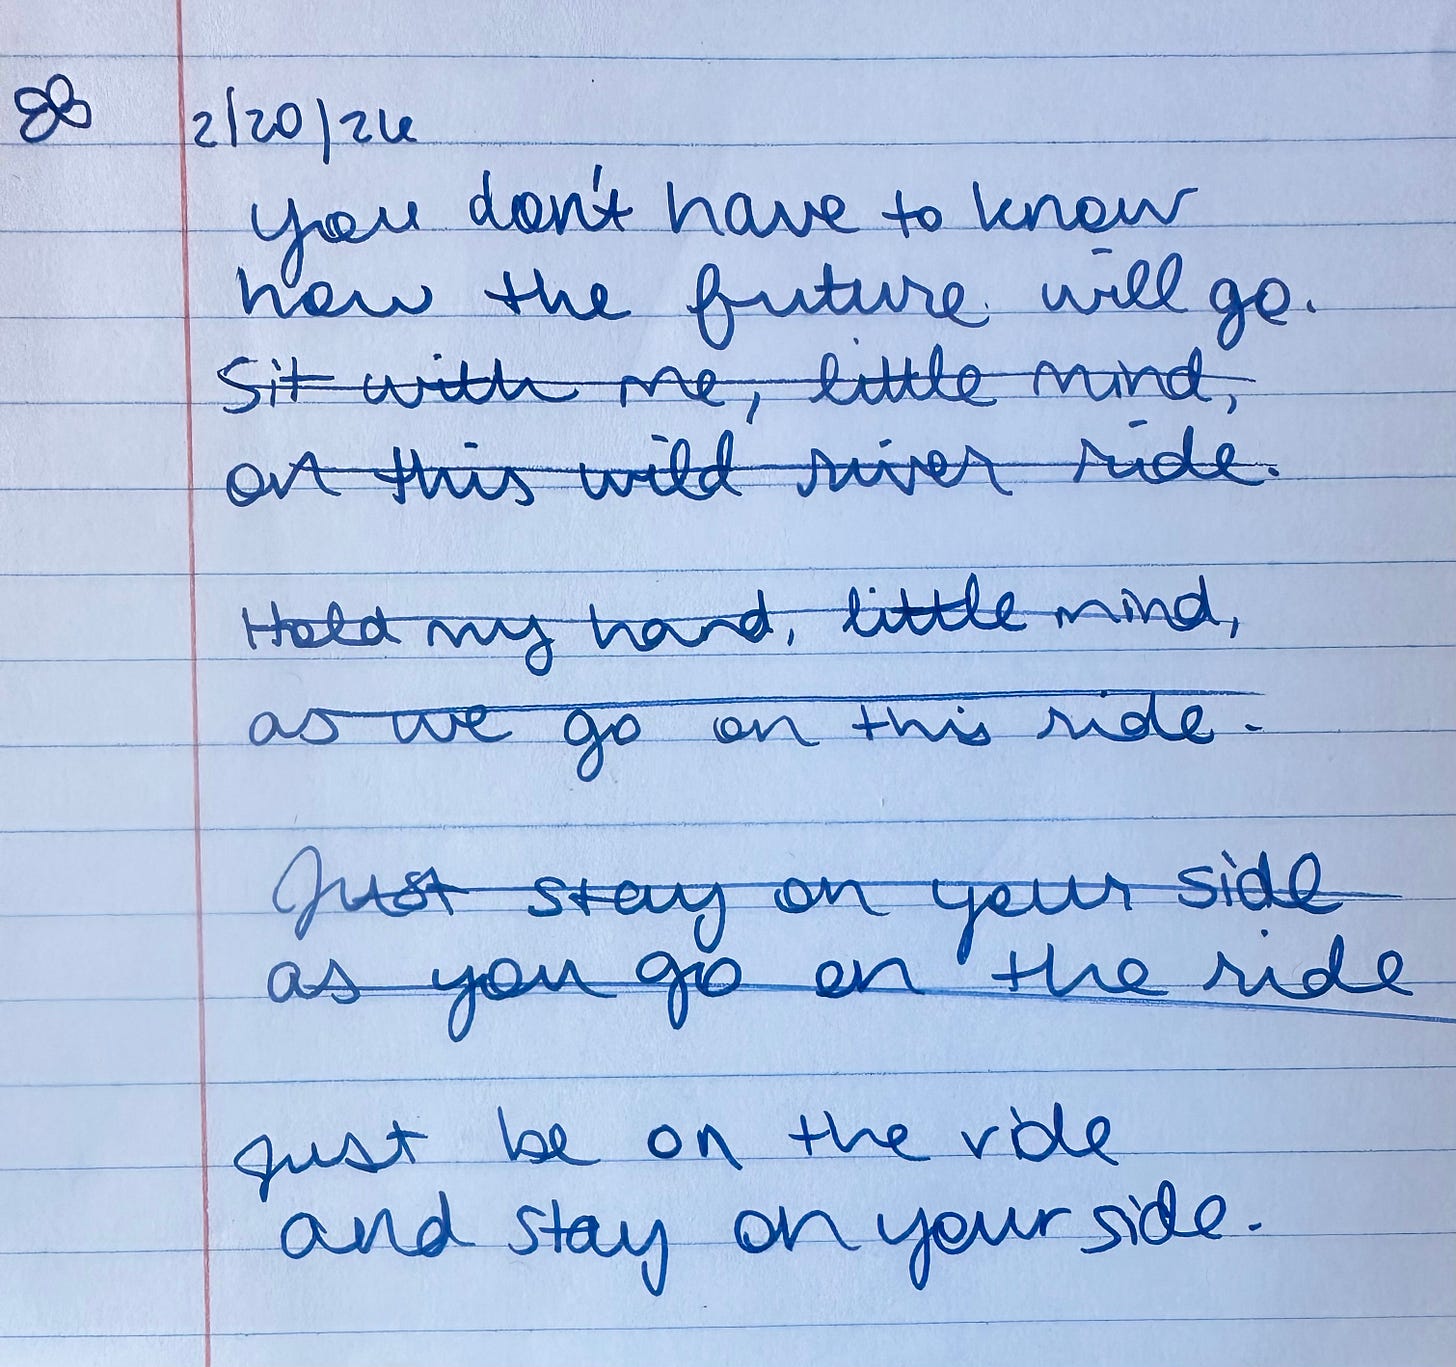 2/20/26
you don't have to know
how the future will go.
Sit with me, little mind,
on this wild river ride.
Hold my hand, little mind,
as we go on this ride.
Just stay on your side
as you go on the ride
just be on the ride
and stay on your side.